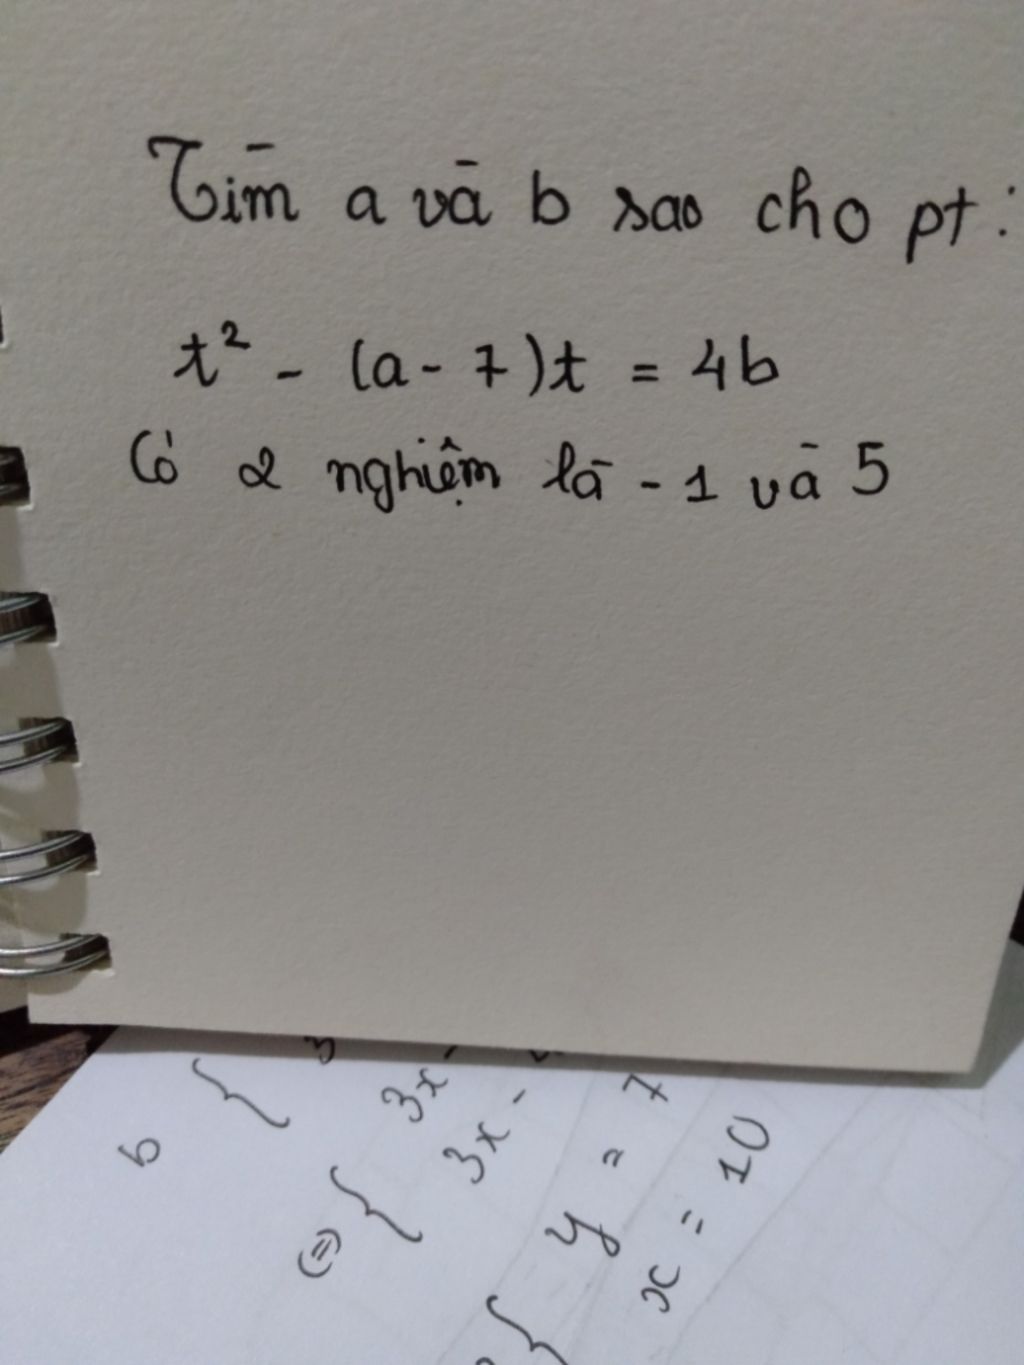 Tìm a và b sao cho pt:
t² - (a - 7)t = 4b
Có 2 nghiệm là -1 và 5
b {
3x
⇔ { 3x -
y = 7
x = 10